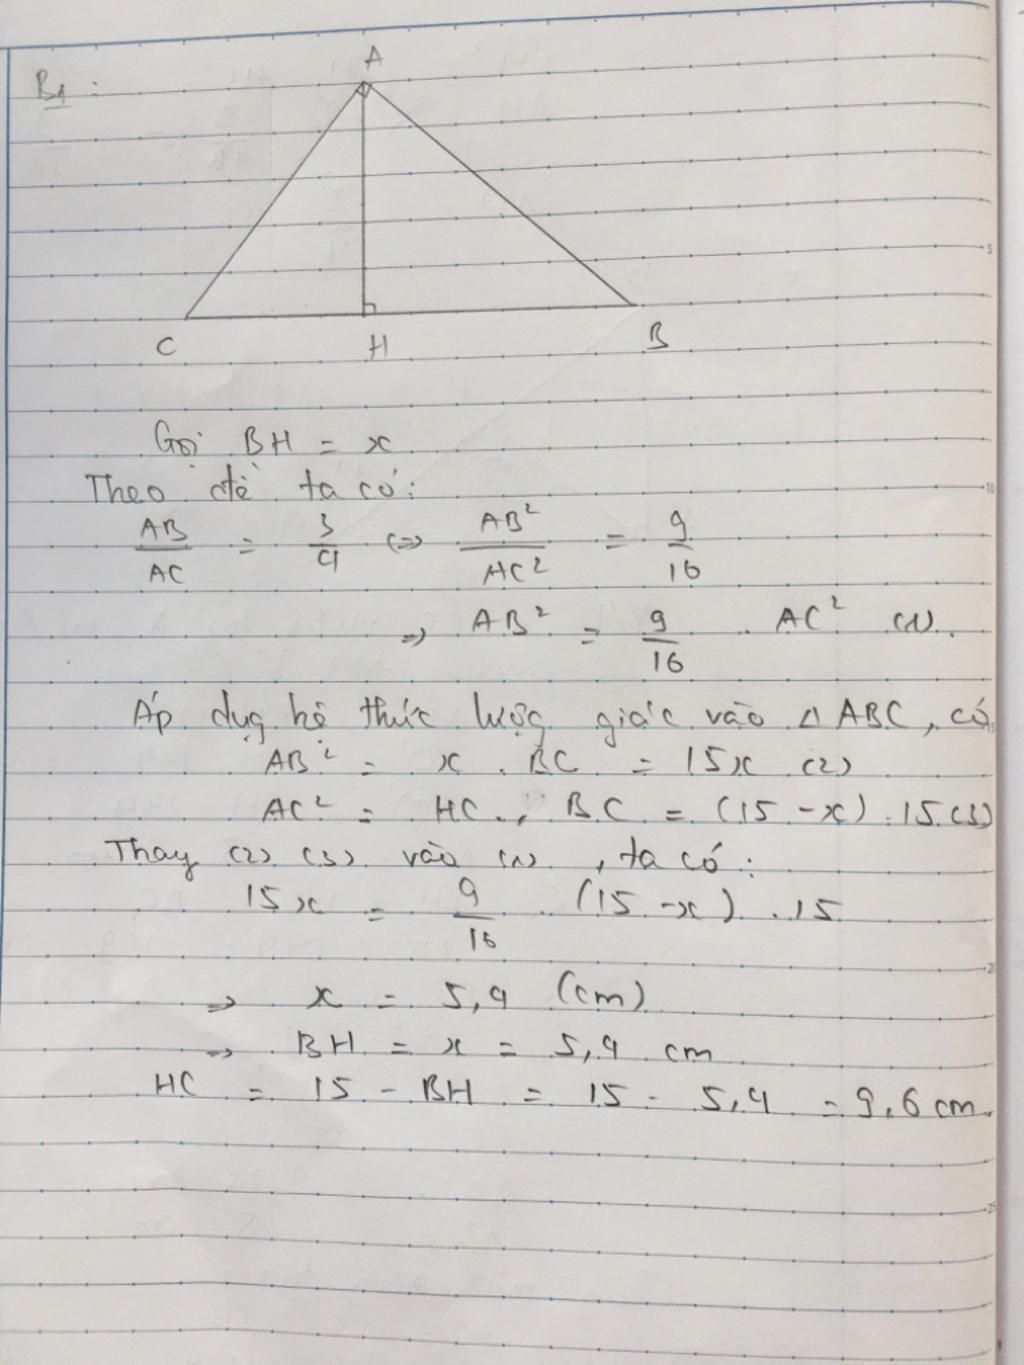 B1 :
A
C H B
Gọi BH = x
Theo đề ta có:
AB/AC = 3/4 (=> AB²/AC² = 9/16
=> AB² = 9/16 . AC² (1).
Áp dụg hệ thức lượg giác vào △ ABC, có
AB² = x . BC = 15x (2)
AC² = HC . BC = (15 - x) . 15 (3)
Thay (2) (3) vào (1) , ta có :
15x = 9/16 . (15 - x) . 15
=> x = 5,4 (cm)
=> BH = x = 5,4 cm
HC = 15 - BH = 15 - 5,4 = 9,6 cm.